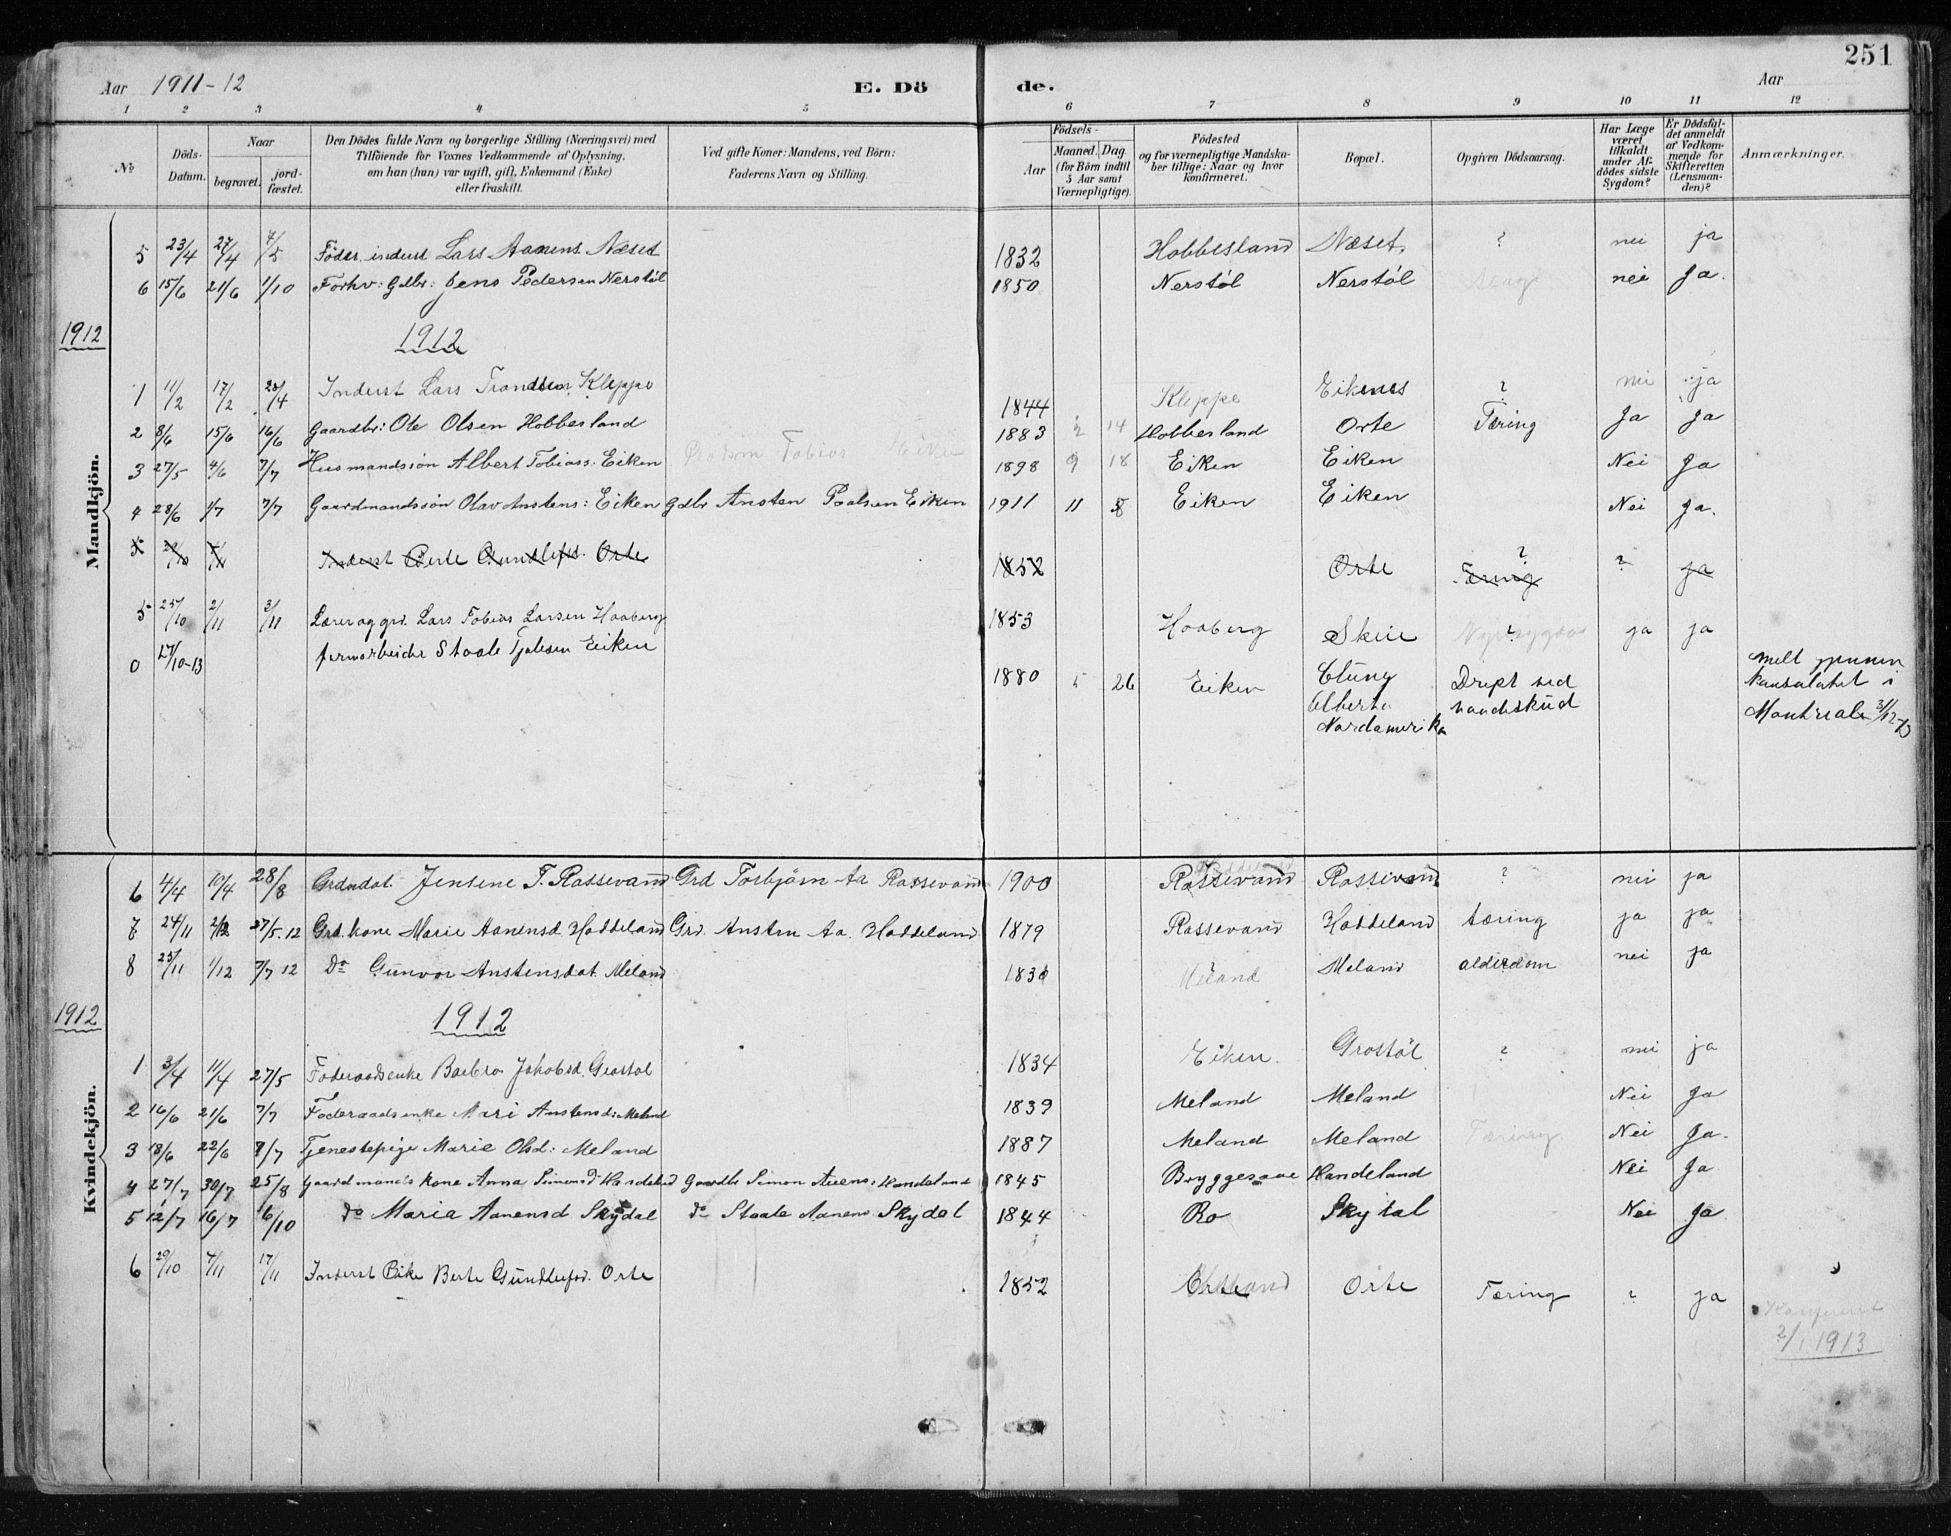 251
Aar 1911-12 E. Dö de. Aar
1 2 3 4 5 6 7 8 9 10 11 12
No
Döds-Datum.
Naar
begravet.
jord-fæstet.
Den Dödes fulde Navn og borgerlige Stilling (Næringsvei) med
Tilföiende for Voxnes Vedkommende af Oplysning,
om han (hun) var ugift, gift, Enkemand (Enke)
eller fraskilt.
Ved gifte Koner: Mandens, ved Börn:
Faderens Navn og Stilling.
Födsels-
Aar
Maaned. Dag
(for Börn indtil
5 Aar samt
Værnepligtige).
Födested
og for værnepligtige Mandska-
ber tillige: Naar og hvor
konfirmeret.
Bopæl.
Opgiven Dödsaarsag.
Har Læge
været
tilkaldt
under Af-
dödes sidste
Sygdom?
Er Dödsfal-
det anmeldt
af Vedkom-
mende for
Skifteretten
(Lensman-
den)?
Anmærkninger.
Mandkjön.
5 23/4 27/4 7/5 Föder. inderst Lars Aanens. Næset 1832 Hobbesland Næset. ? nei ja
6 15/6 21/6 1/10 Forhv: Gdbr: Jens Pedersen Nerstöl 1850 Nerstöl Nerstöl nei Ja.
1912 1912
1 11/2 17/2 28/4 Inderst Lars Trondsen Kleppe 1844 Kleppe Eikenes ? nei ja
2 8/6 15/6 16/6 Gaardbr: Ole Olsen Hobbesland 1883 2 14 Hobbesland Orte Tæring Ja Ja
3 27/5 4/6 7/7 Husmandssön Albert Tobiass. Eiken Tobias Eiken 1898 9 18 Eiken Eiken Nei Ja
4 28/6 1/7 7/7 Gaardmandssön Olav Anstens: Eiken Gdbr Ansten Paalsen Eiken 1911 11 8 Eiken Eiken Nei Ja.
5 Inderst Berte Gundlefsd. Orte 1852 Orte Tæring ? ? ja
5 25/10 2/11 3/11 Lærer og grd. Lars Tobias Larsen Haaberg 1853 Haaberg Skeie ? ja ja
0 27/10-13 farmarbeider Staale Tjalesen Eiken 1880 5 26 Eiken Cluny Alberta Nordamerika Drept ved vaadeskud
melt gjennem
konsulatet i
Montreal 3/12-13
Kvindekjön.
6 4/4 10/4 28/8 Grdmdat. Jensene T. Rossevand Grd Torbjörn Aa Rossevand 1900 Rossevand Rossevand ? nei ja
7 24/11 2/12 27/5.12 Grd. kone Marie Aanensd Haddeland Grd. Ansten Aa. Haddeland 1879 Rossevand Haddeland tæring ja ja
8 25/11 1/12 7/7 12 Do Gunvor Anstensdat. Meland 1830 Meland Meland alderdom nei ja
1912 1912
1 3/4 11/4 27/5 Föderaadsenke Barbro Jakobsd. Grostöl 1834 Eiken. Grostöl ? nei ja
2 16/6 21/6 7/7 Föderaadsenke Mari Anstensd: Meland 1839 Meland Meland Nei Ja
3 18/6 22/6 7/7 Tjenestepige Marie Olsd: Meland 1887 Meland Meland Tæring Nei Ja.
4 27/7 30/7 25/8 Gaardmands kone Anna Simonsd Handeland Gaardbr Simon Auens: Handeland 1845 Bryggesaae Handeland Nei Ja
5 12/7 16/7 6/10 Do Maria Aanensd Skydal Do Staale Aanens. Skydal 1844 Ro Skydal Nei Ja
6 29/10 7/11 17/11 Inderst Enke Berte Gundlefsd. Orte 1852 Orte Tæring ? ja
Konfereret
2/1 1913